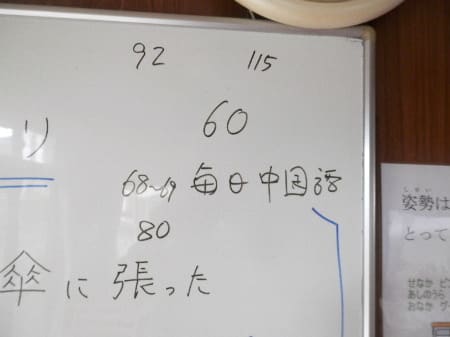 92 115
60
り
68~69 毎日中国語
80
傘に張った
しせい
姿勢は
とって
せなか ピ
あしのうら
おなか グ